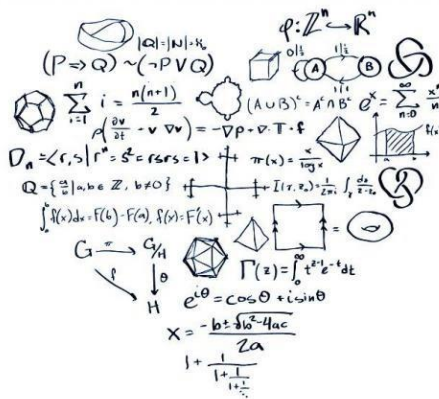 |ℚ|=|ℕ|=ℵ₀
φ: ℤⁿ ↪ ℝⁿ
(P ⇒ Q) ~ (¬P ∨ Q)
A B
∑_{i=1}^{n} i = n(n+1)/2
(A ∪ B)ᶜ = Aᶜ ∩ Bᶜ
eˣ = ∑_{n=0}^{∞} xⁿ
ρ(∂v/∂t - v ∇v) = -∇p + ∇·T + f
f(x)
a
Dₙ = <r,s | rⁿ = s² = rsrs = 1>
π(x) = x/log x
ℚ = {a/b | a,b ∈ ℤ, b ≠ 0}
∫_a^b f(x)dx = F(b) - F(a), f(x) = F'(x)
G π G/H
f θ
H
Γ(z) = ∫_0^∞ t^{z-1} e^{-t} dt
e^{iθ} = cosθ + i sinθ
x = (-b ± √(b²-4ac))/2a
1 + 1/(1 + 1/(1 + 1/(1 + ⋱)))